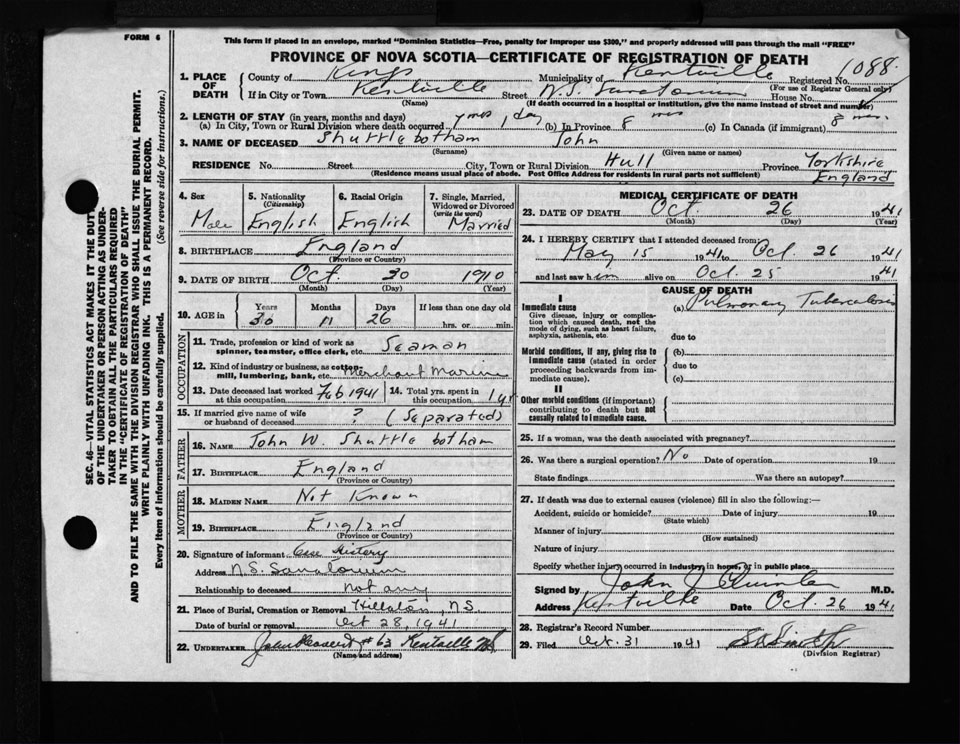 FORM 6
This form if placed in an envelope, marked "Dominion Statistics—Free, penalty for improper use $300," and properly addressed will pass through the mail "FREE"
PROVINCE OF NOVA SCOTIA—CERTIFICATE OF REGISTRATION OF DEATH
SEC. 46—VITAL STATISTICS ACT MAKES IT THE DUTY
OF THE UNDERTAKER OR PERSON ACTING AS UNDER-
TAKER TO OBTAIN ALL THE PARTICULARS REQUIRED
IN THE "CERTIFICATE OF REGISTRATION OF DEATH"
AND TO FILE THE SAME WITH THE DIVISION REGISTRAR WHO SHALL ISSUE THE BURIAL PERMIT.
WRITE PLAINLY WITH UNFADING INK. THIS IS A PERMANENT RECORD.
Every item of information should be carefully supplied. (See reverse side for instructions.)
1. PLACE OF DEATH
County of Kings Municipality of Kentville Registered No. 1088
(For use of Registrar General only)
If in City or Town Kentville Street N.S. Sanatorium House No.
(Name) (If death occurred in a hospital or institution, give the name instead of street and number)
2. LENGTH OF STAY (in years, months and days)
(a) In City, Town or Rural Division where death occurred mos 1 day (b) In Province 8 mos (c) In Canada (if immigrant) 8 mos.
3. NAME OF DECEASED Shuttlebotham John
(Surname) (Given name or names)
RESIDENCE No. Street City, Town or Rural Division Hull Province Yorkshire
(Residence means usual place of abode. Post Office Address for residents in rural parts not sufficient) England
4. Sex Male
5. Nationality (Citizenship) English
6. Racial Origin English
7. Single, Married, Widowed or Divorced (write the word) Married
8. BIRTHPLACE England
(Province or Country)
9. DATE OF BIRTH Oct. 30 1910
(Month) (Day) (Year)
10. AGE in Years 30 Months 11 Days 26 If less than one day old
hrs. or min.
OCCUPATION
11. Trade, profession or kind of work as spinner, teamster, office clerk, etc. Seaman
12. Kind of industry or business, as cotton-mill, lumbering, bank, etc. Merchant Marine
13. Date deceased last worked at this occupation Feb 1941
14. Total yrs. spent in this occupation 1 yr
15. If married give name of wife or husband of deceased ? (Separated)
FATHER
16. NAME John W. Shuttlebotham
17. BIRTHPLACE England
(Province or Country)
MOTHER
18. MAIDEN NAME Not Known
19. BIRTHPLACE England
(Province or Country)
20. Signature of informant Case History
Address N.S. Sanatorium
Relationship to deceased not any
21. Place of Burial, Cremation or Removal Hillaton, N.S.
Date of burial or removal Oct 28, 1941
22. UNDERTAKER # 63 Kentville N.S.
(Name and address)
MEDICAL CERTIFICATE OF DEATH
23. DATE OF DEATH Oct. 26 1941
(Month) (Day) (Year)
24. I HEREBY CERTIFY that I attended deceased from
May 15 1941 to Oct. 26 1941
and last saw him alive on Oct. 25 1941
CAUSE OF DEATH
I
Immediate cause (a) Pulmonary Tuberculosis
Give disease, injury or complication which caused death, not the mode of dying, such as heart failure, asphyxia, asthenia, etc. due to
Morbid conditions, if any, giving rise to immediate cause (stated in order proceeding backwards from immediate cause). (b)
due to
(c)
II
Other morbid conditions (if important) contributing to death but not causally related to immediate cause.
25. If a woman, was the death associated with pregnancy?
26. Was there a surgical operation? No Date of operation 19
State findings Was there an autopsy?
27. If death was due to external causes (violence) fill in also the following:—
Accident, suicide or homicide? Date of injury 19
(State which)
Manner of injury
(How sustained)
Nature of injury
Specify whether injury occurred in industry, in home, or in public place
Signed by John J. Quinlan M.D.
Address Kentville Date Oct. 26 1941
28. Registrar's Record Number
29. Filed Oct. 31 1941
(Division Registrar)